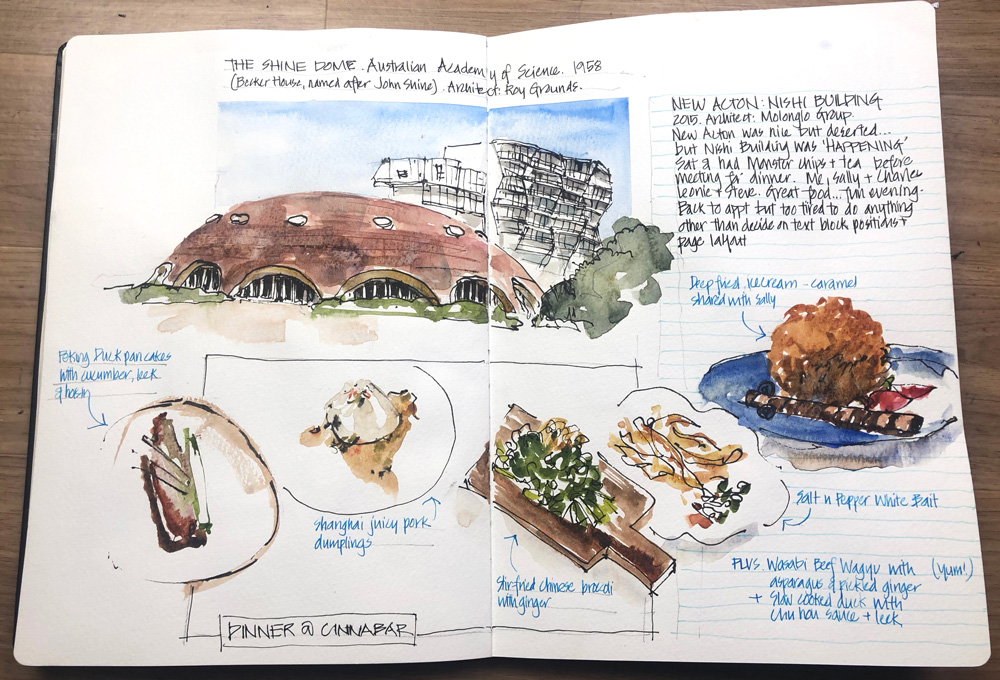 THE SHINE DOME. Australian Academy of Science. 1958
(Becker House, named after John Shine). Architect: Roy Grounds.
NEW ACTON: NISHI BUILDING
2015. Architect: Molonglo Group.
New Acton was nice but deserted...
but Nishi Building was 'HAPPENING'
Sat & had Monster chips + tea before
meeting for dinner. Me, Sally + Charles
Leonie + Steve. Great food... fun evening.
Back to appt but too tired to do anything
other than decide on text block positions +
page layout
Deep fried icecream - caramel
shared with Sally
Peking Duck pancakes
with cucumber, leek
& hoisin
Shanghai juicy pork
dumplings
Stir-fried Chinese brocoli
with ginger
Salt n Pepper White Bait
PLUS. Wasabi Beef Wagyu with (yum!)
asparagus & pickled ginger
+ Slow cooked duck with
Chu hou sauce + leek
DINNER @ CINNABAR